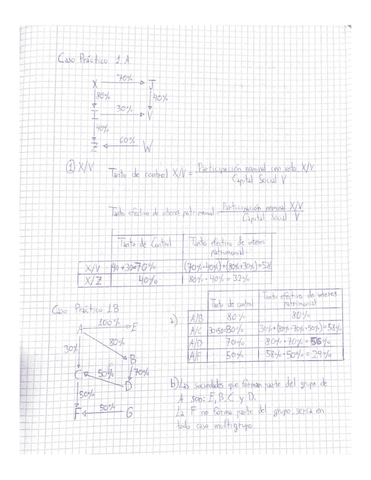 Caso Práctico 1 A
70%
X J
80% 40%
30%
I V
40%
60%
Z W
① X/V
Tanto de control X/V = Participación nominal con voto X/V
Capital Social V
Tanto efectivo de interés patrimonial Participación nominal X/V
Capital Social V
Tanto de Control Tanto efectivo de interés patrimonial
X/V 40+30=70% (70%·40%)+(80%·30%)=52%
X/Z 40% 80%·40% = 32%
Caso Práctico 1B
100%
A E
80%
30%
B
C 50% 70%
D
50%
F 50% G
a)
Tanto de control Tanto efectivo de interés patrimonial
A/B 80% 80%
A/C 30+50=80% 30%+(80%·70%·50%)=58%
A/D 70% 80%·70% = 56%
A/F 50% 58%·50% = 29%
b) Las sociedades que forman parte del grupo de
A son: E, B, C y D.
La F no forma parte del grupo, sería en
todo caso multigrupo.